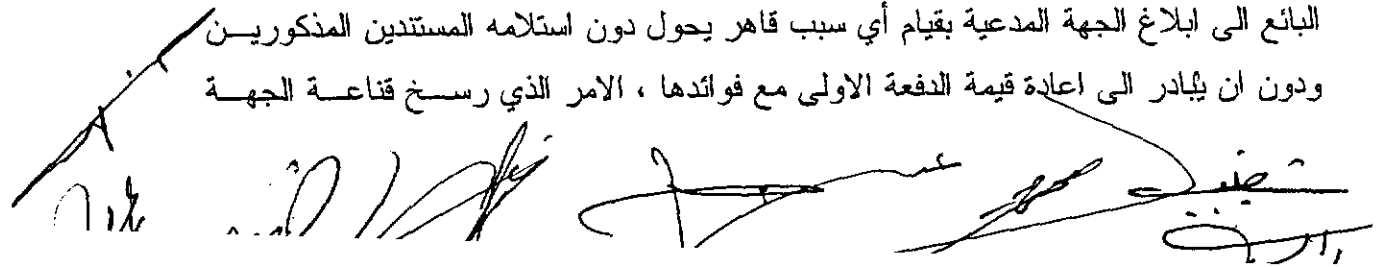 البائع الى ابلاغ الجهة المدعية بقيام أي سبب قاهر يحول دون استلامه المستندين المذكوريــن
ودون ان يُبادر الى اعادة قيمة الدفعة الاولى مع فوائدها ، الامر الذي رســخ قناعــة الجهــة